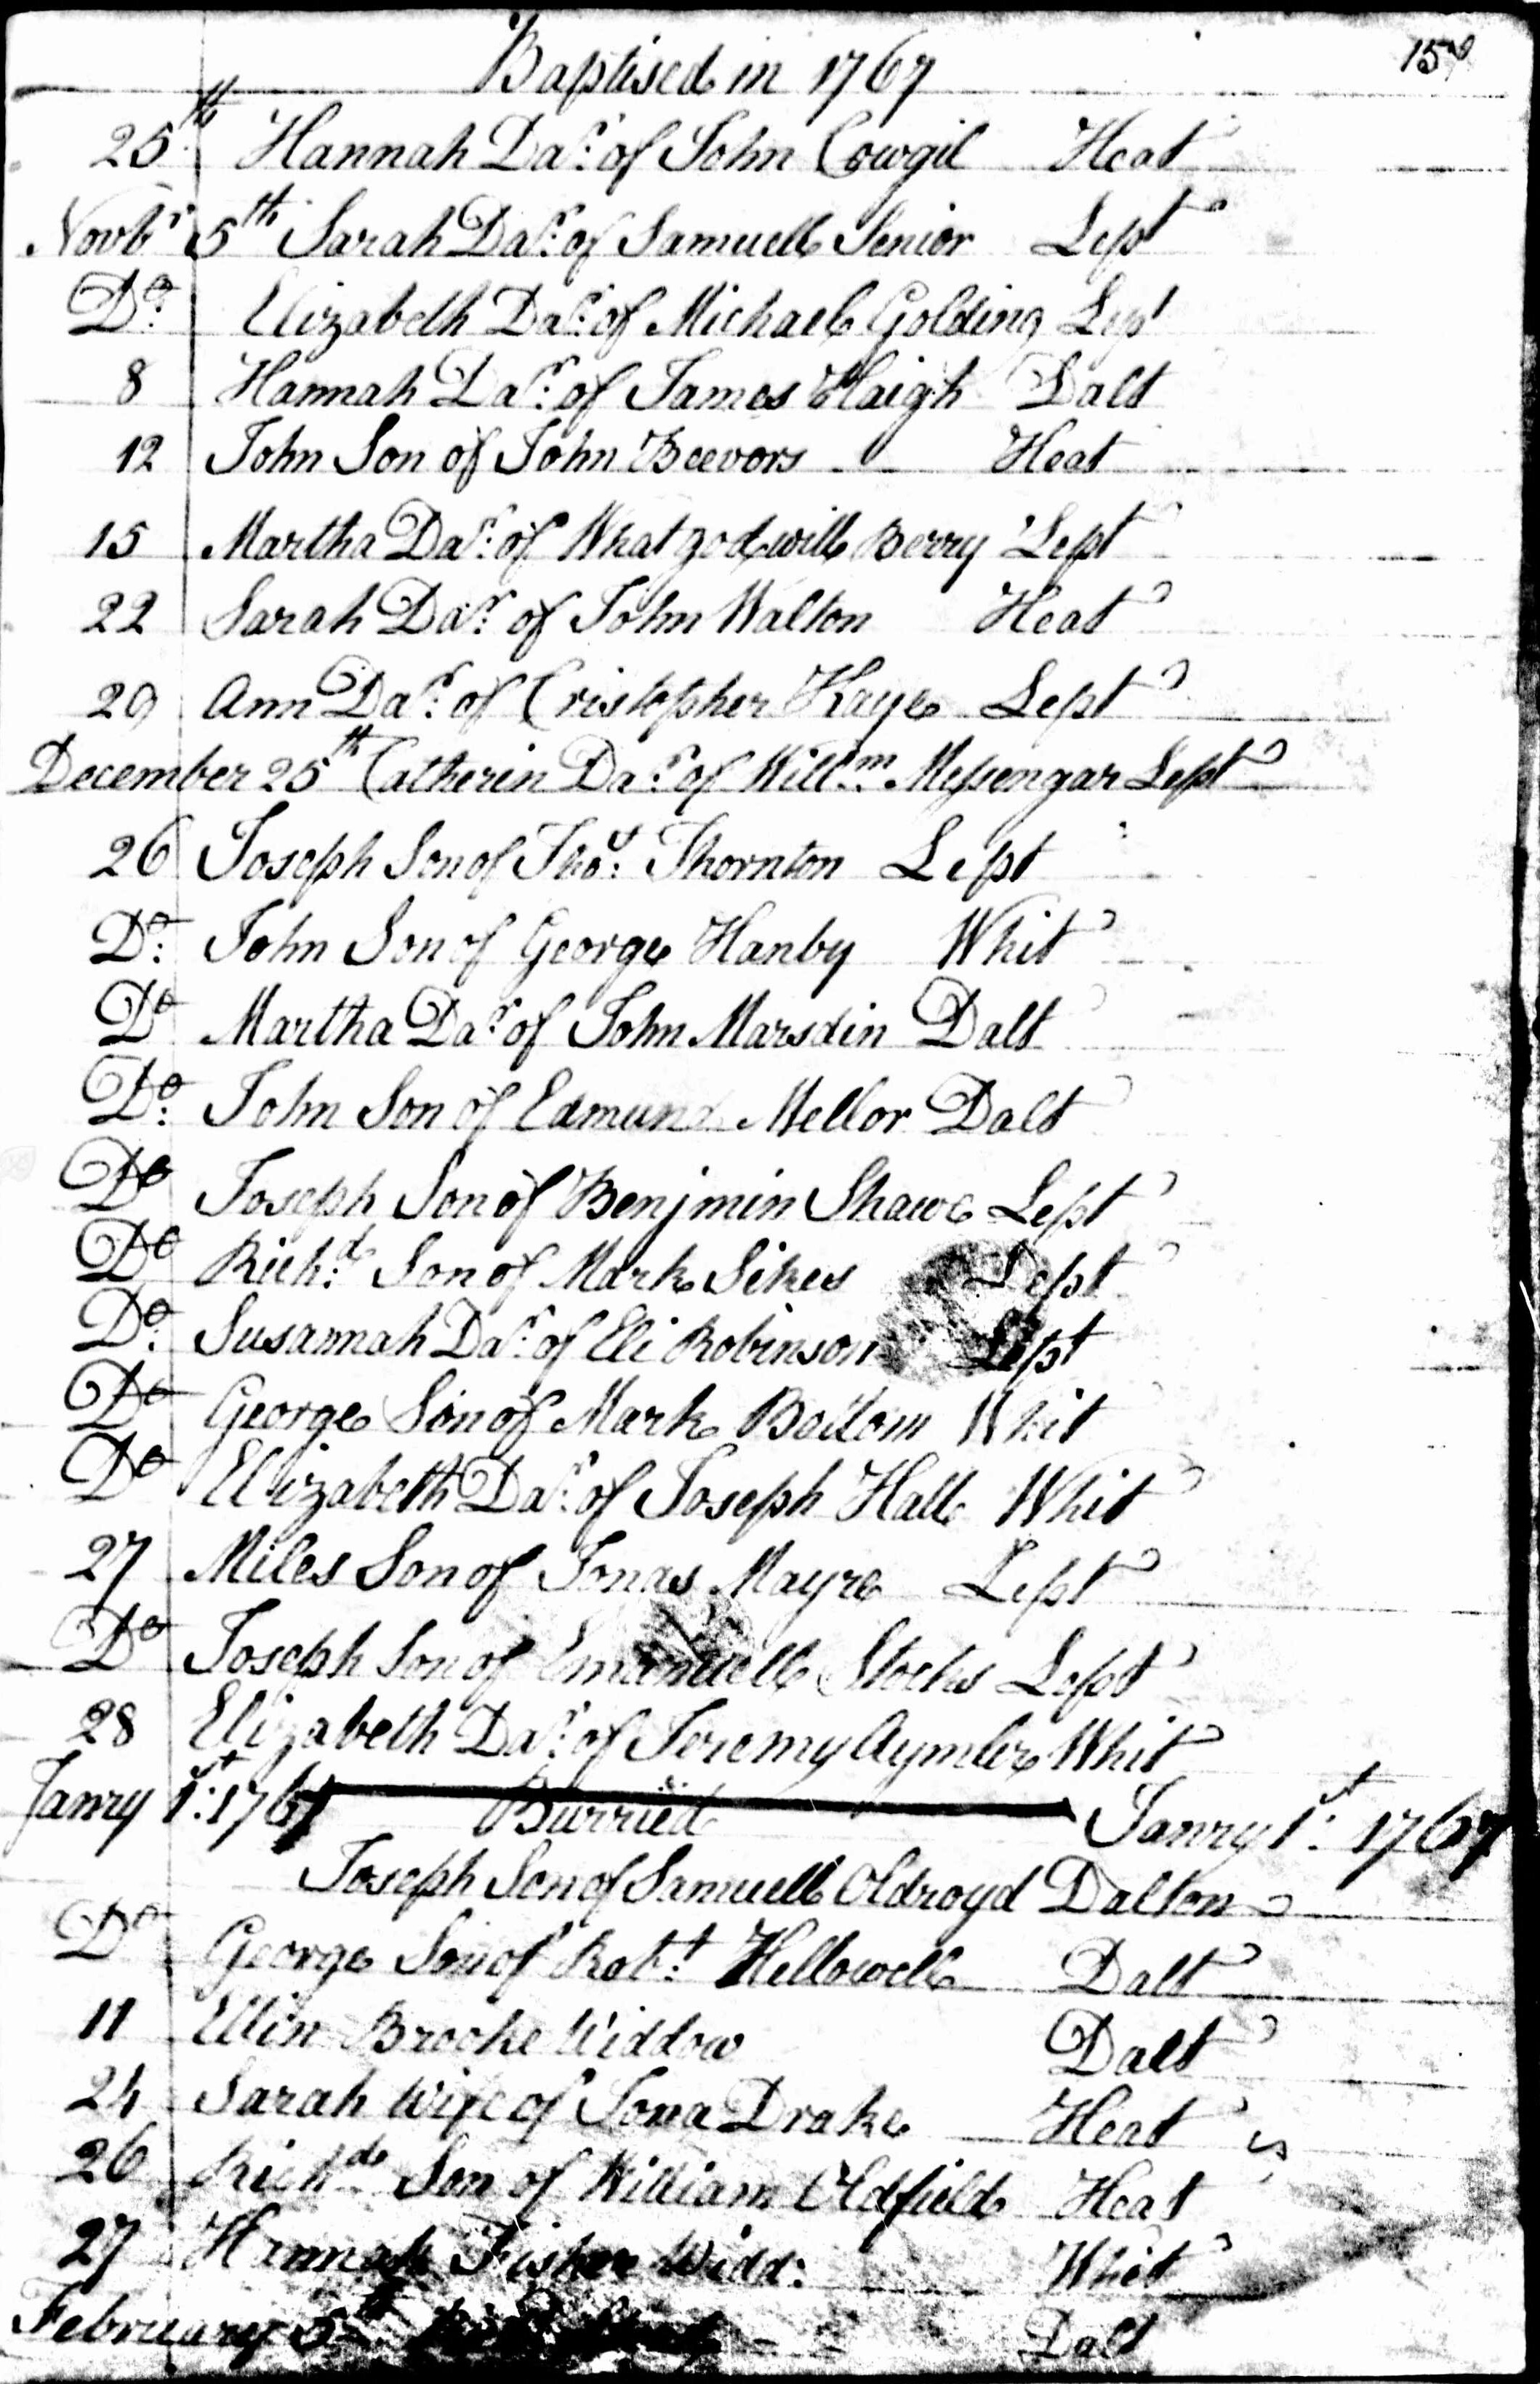 Baptised in 1767
25th Hannah Dar: of John Cowgil Heat
Novbr 5th Sarah Dar: of Samuell Senior Lept
Do: Elizabeth Dar: of Michael Golding Lept
8 Hannah Dar: of James Haigh Dalt
12 John Son of John Beevors Heat
15 Martha Dar: of What god will Berry Lept
22 Sarah Dar: of John Walton Heat
29 Ann Dar: of Cristopher Kaye Lept
December 25th Catherin Dar: of Willm: Messengar Lept
26 Joseph Son of Thos: Thornton Lept
Do: John Son of George Hanby Whit
Do Martha Dar: of John Marsdin Dalt
Do: John Son of Edmund Mellor Dalt
Do Joseph Son of Benjmin Shawe Lept
Do Richd: Son of Mark Sikes Lept
Do: Susannah Dar: of Eli Robinson Lept
Do George Son of Mark Bottom Whit
Do Elizabeth Dar: of Joseph Hall Whit
27 Miles Son of Jonas Mayre Lept
Do Joseph Son of Emanuell Stocks Lept
28 Elizabeth Dar: of Jeremy Aymler Whit
Janry 1st: 1767 Burried Janry 1st: 1767
Joseph Son of Samuell Oldroyd Dalton
Do George Son of Robt: Hellowell Dalt
11 Ellin Brooke Widdow Dalt
24 Sarah Wife of Jona Drake Heat
26 Richd Son of William Oldfield Heat
27 Hannah Fisher Widd: Whit
February 5th Dalt